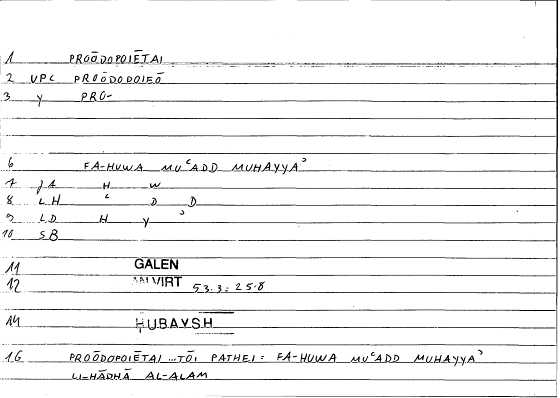 1 PROŌDOPOIĒTAI
2 VPC PROŌDODOIEŌ
3 Y PRO-
6 FA-HUWA MUʿADD MUHAYYAʾ
7 JA H W
8 LH ʿ D D
9 LD H Y ʾ
10 SB
11 GALEN
12 AN VIRT 53.3 = 25.8
14 HUBAYSH
16 PROŌDOPOIĒTAI ... TŌI PATHEI = FA-HUWA MUʿADD MUHAYYAʾ
LI-HĀDHĀ AL-ALAM